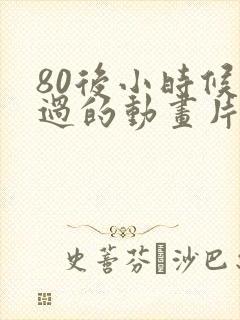 80後小時候
過的動畫片
史蒈芬·沙巴